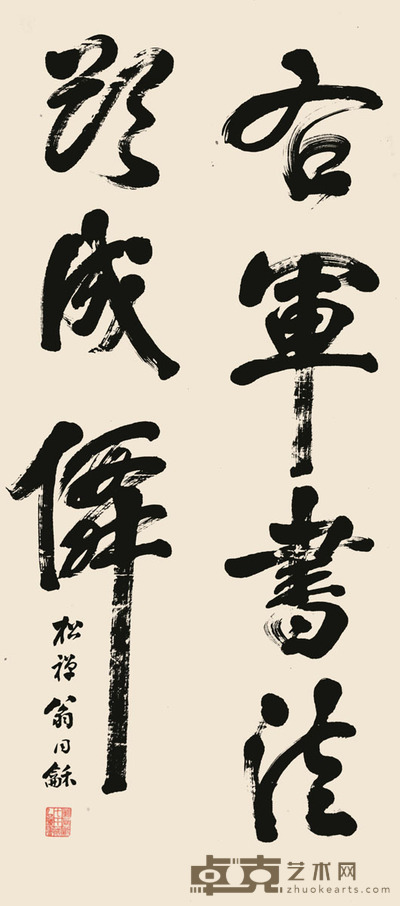 右軍書法
成
松禪翁同龢
卓克艺术网
zhuokearts.com